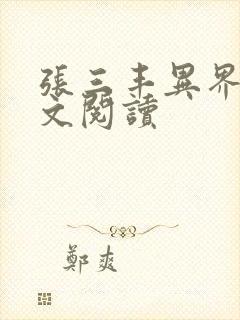 張三丰異界
文閱讀
鄭爽